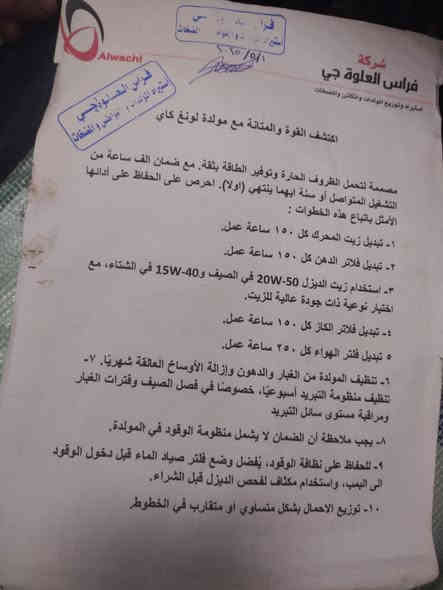 Alwachi
شركة
فراس العلوة جي
استيراد وتوزيع المولدات والمكائن والمضخات
٢٠٢٥/٥/١
اكتشف القوة والمتانة مع مولدة لونغ كاي
مصممة لتحمل الظروف الحارة وتوفير الطاقة بثقة. مع ضمان الف ساعة من
التشغيل المتواصل أو سنة ايهما ينتهي (اولا). احرص على الحفاظ على أدائها
الأمثل باتباع هذه الخطوات :
١- تبديل زيت المحرك كل ١٥٠ ساعة عمل.
٢- تبديل فلاتر الدهن كل ١٥٠ ساعة عمل.
٣- استخدام زيت الديزل 20W-50 في الصيف و15W-40 في الشتاء، مع
اختيار نوعية ذات جودة عالية للزيت.
٤- تبديل فلاتر الكاز كل ١٥٠ ساعة عمل.
٥ تبديل فلتر الهواء كل ٢٥٠ ساعة عمل.
٦- تنظيف المولدة من الغبار والدهون وإزالة الأوساخ العالقة شهريًا. ٧-
تنظيف منظومة التبريد أسبوعيًا، خصوصًا في فصل الصيف وفترات الغبار
ومراقبة مستوى سائل التبريد
٨- يجب ملاحظة أن الضمان لا يشمل منظومة الوقود في المولدة.
٩- للحفاظ على نظافة الوقود، يُفضل وضع فلتر صياد الماء قبل دخول الوقود
الى البمب، واستخدام مكثاف لفحص الديزل قبل الشراء.
١٠- توزيع الاحمال بشكل متساوي أو متقارب في الخطوط